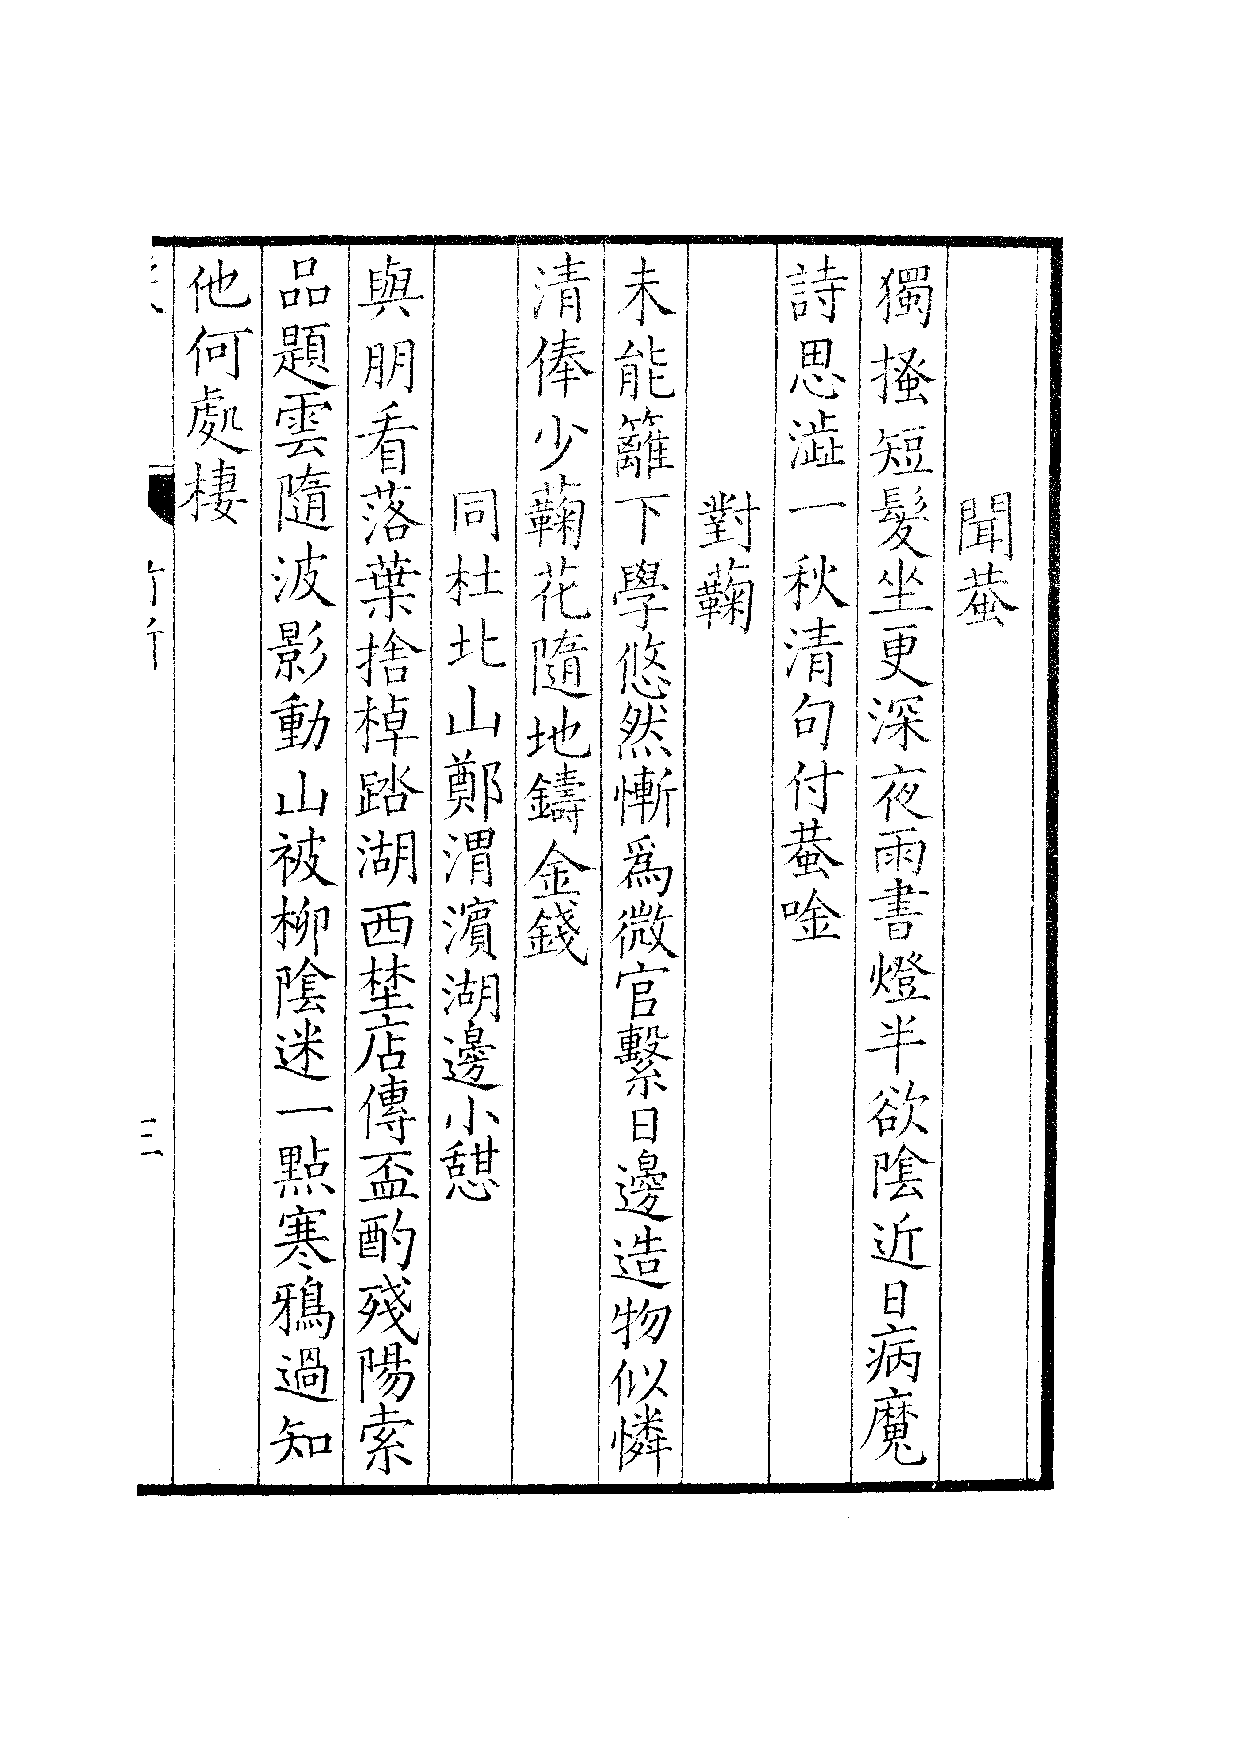 聞蛬
獨搔短髮坐更深夜雨書燈半欲陰近日病魔
詩思澁一秋清句付蛬唫
對蘜
未能籬下學悠然慚爲微官繫日邊造物似憐
清俸少蘜花隨地鑄金錢
同杜北山鄭渭濵湖邊小憇
與朋看落葉捨棹踏湖西埜店傳盃酌殘陽索
品題雲隨波影動山被柳陰迷一點寒鴉過知
他何處棲
三